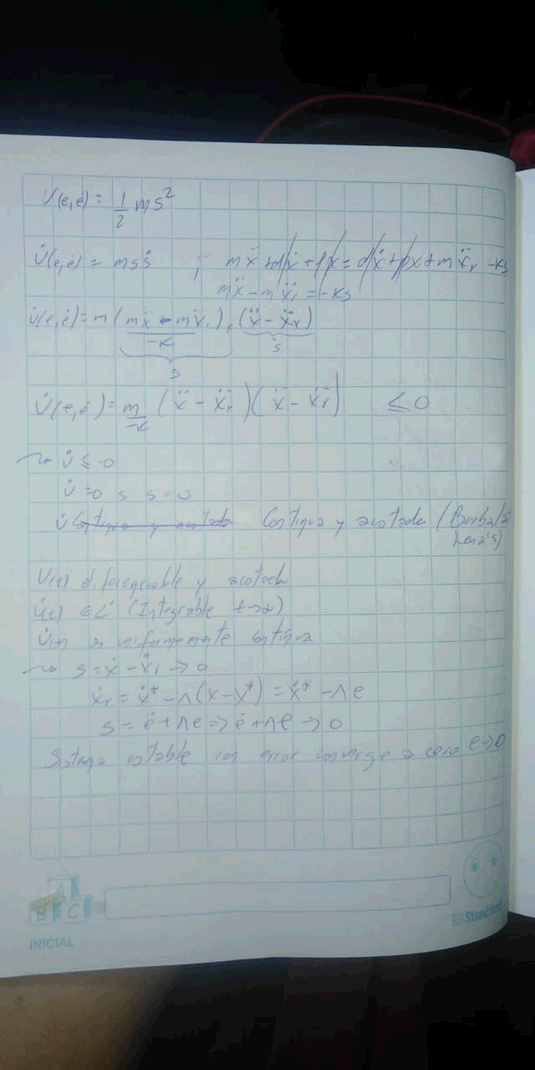 V(e,ė) = 1/2 ms²
V̇(e,ė) = msṡ ; mẍ + dẋ + px = dẋ + px + mẍᵣ - ks
mẍ - mẍᵣ = -ks
V̇(e,ė) = m (mẍ - mẍᵣ) · (ẍ - ẍᵣ)
-k ṡ
s
V̇(e,ė) = m/-k (ẍ - ẍᵣ)(ẍ - ẍᵣ) ≤ 0
→ V̇ ≤ 0
V̇ = 0 s s = 0
V̇ Continua y acotada Continua y acotada (Barbalat
Lema's)
V(t) diferenciable y acotada
V̇(t) ∈ L¹ (Integrable t→∞)
V̇(t) es uniformemente continua
→ s = ẋ - ẋᵣ → 0
ẋᵣ = ẋ* - Λ(x - x*) = ẋ* - Λe
s = ė + Λe => ė + Λe → 0
Sistema estable con error converge a cero e→0
ABC
INICIAL
Standford